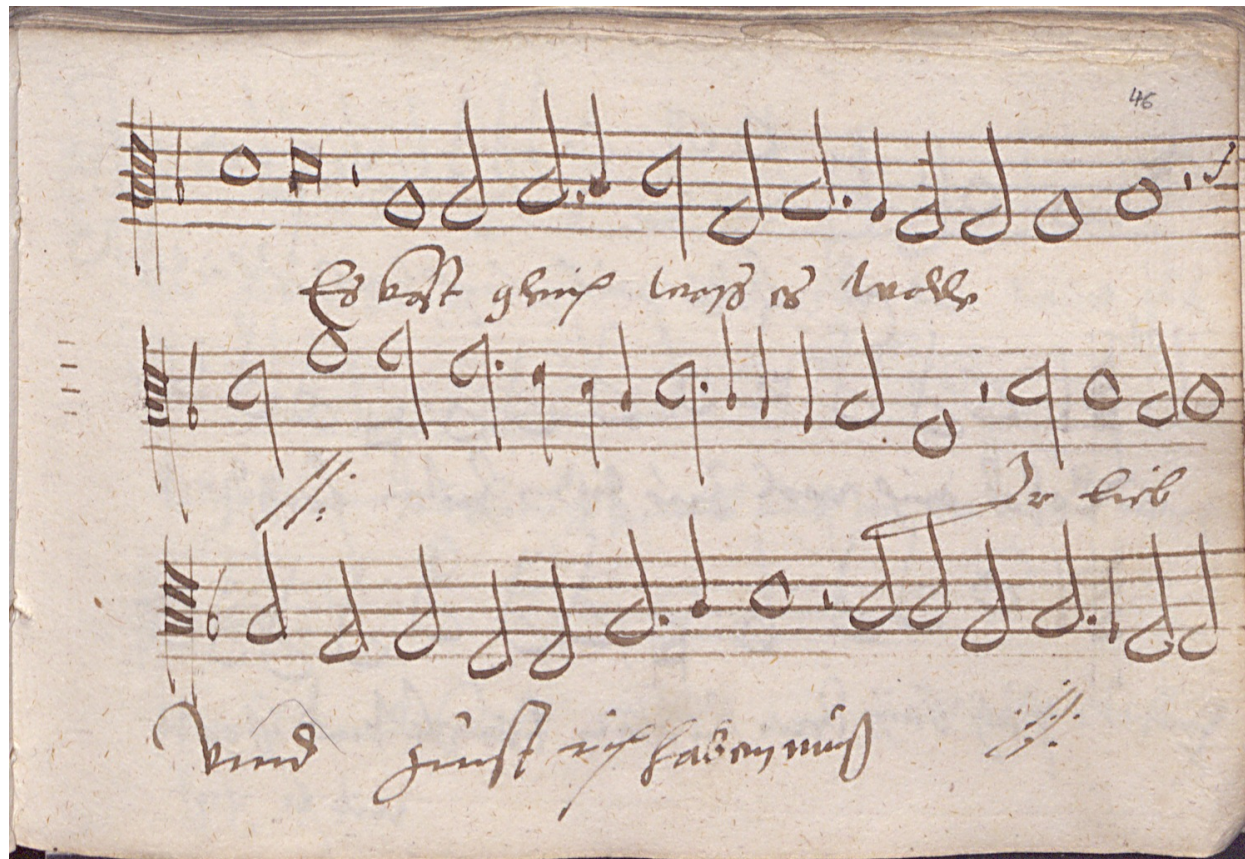 46
Es kost gleich wass es wolle
//: Ir lieb
vnnd gunst ich haben muß //: